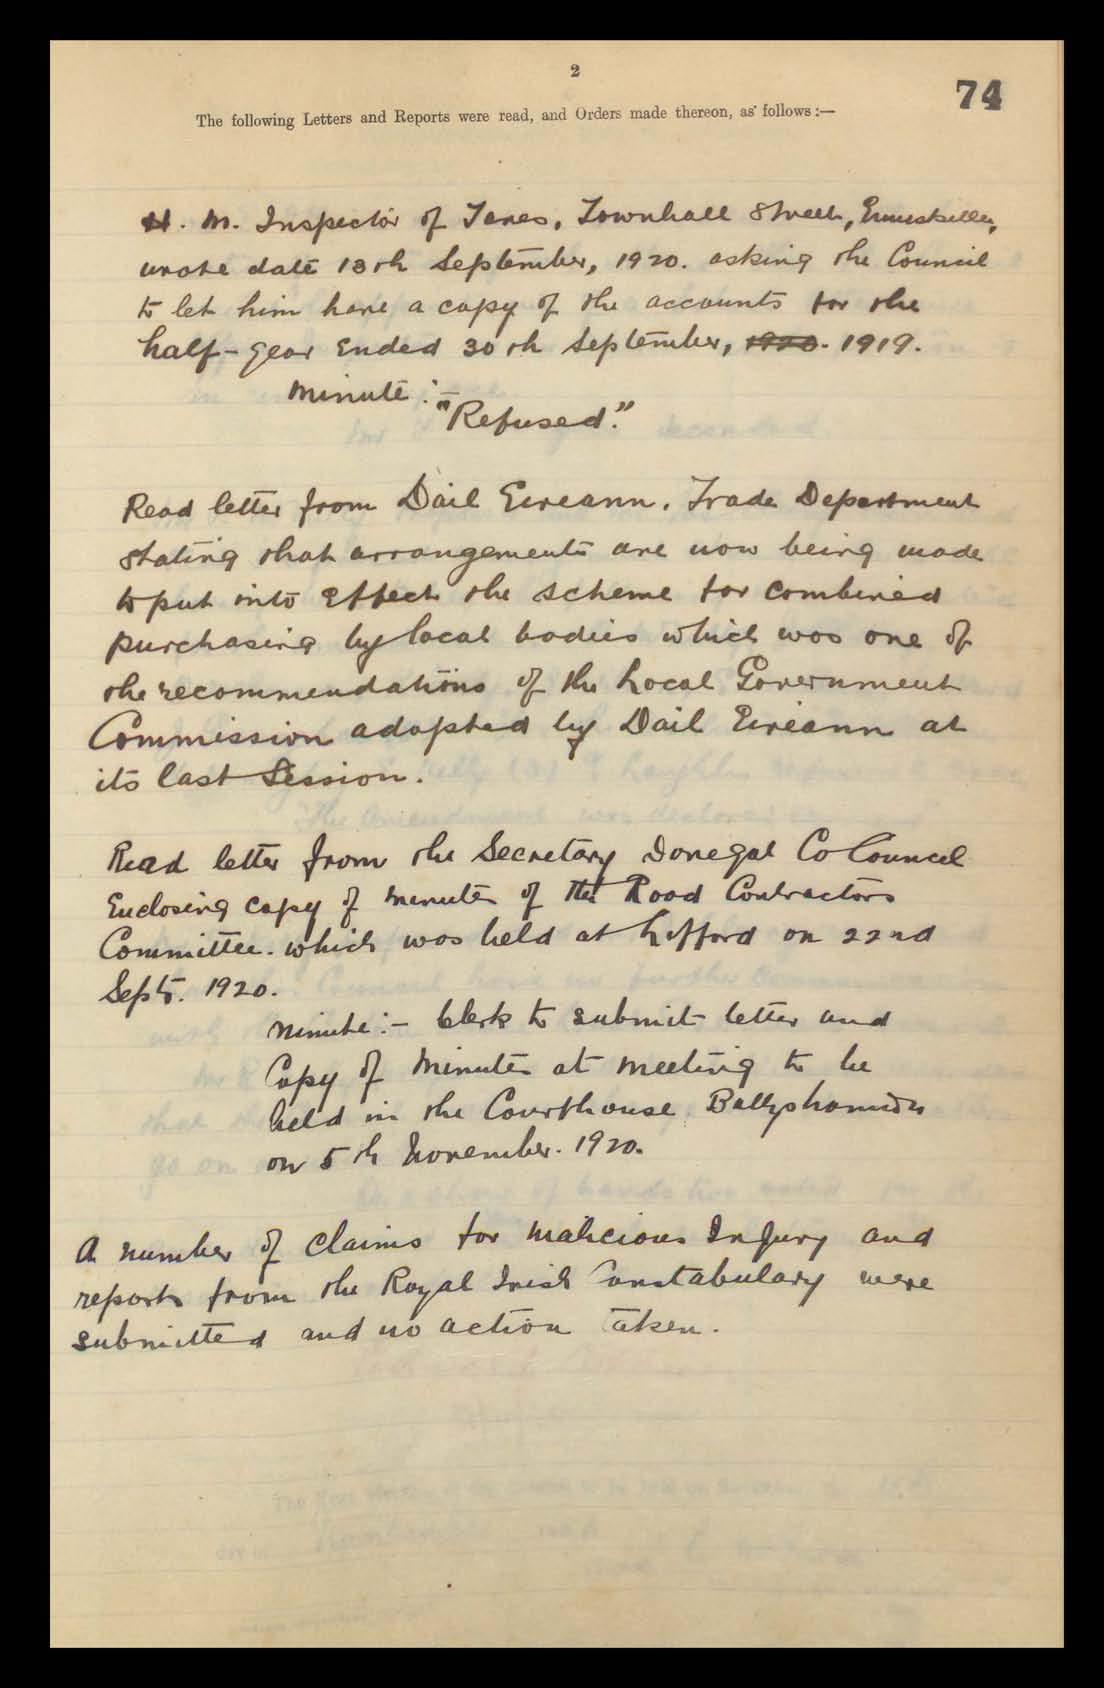 2
74
The following Letters and Reports were read, and Orders made thereon, as follows:—
H. M. Inspector of Taxes, Townhall Street, Enniskillen,
wrote date 13th September, 1920. asking the Council
to let him have a copy of the accounts for the
half-year Ended 30th September, 1920. 1919.
Minute :-
"Refused."
Read letter from Dáil Eireann. Trade Department
stating that arrangements are now being made
to put into Effect the scheme for combined
purchasing by local bodies which was one of
the recommendations of the Local Government
Commission adopted by Dail Eireann at
its last Session.
Read letter from the Secretary Donegal Co Council
Enclosing copy of minutes of the Road Contractors
Committee. which was held at Lifford on 22nd
Sept. 1920.
Minute:- Clerk to submit letter and
Copy of Minutes at meeting to be
held in the Courthouse. Ballyshannon
on 5th November. 1920.
A number of claims for Malicious Injury and
reports from the Royal Irish Constabulary were
submitted and no action taken.